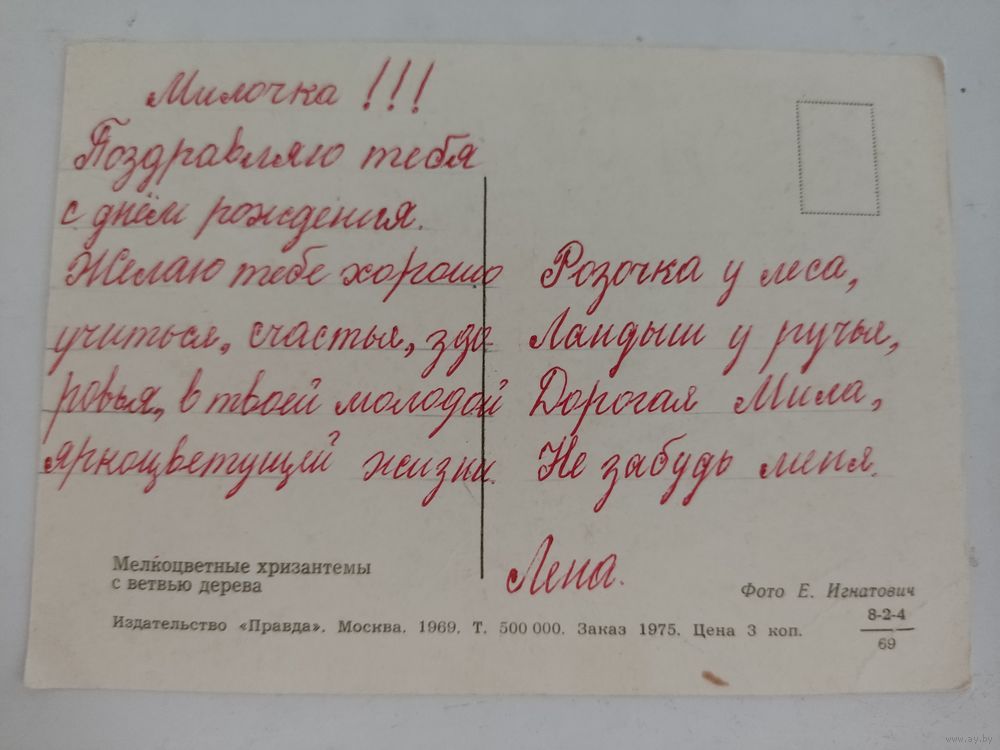 Милочка !!!
Поздравляю тебя
с днём рождения.
Желаю тебе хорошо
учиться, счастья, здо-
ровья, в твоей молодой
яркоцветущей жизни.
Розочка у леса,
Ландыш у ручья,
Дорогая Мила,
Не забудь меня.
Лена.
Мелкоцветные хризантемы
с ветвью дерева
Фото Е. Игнатович
Издательство «Правда». Москва. 1969. Т. 500 000. Заказ 1975. Цена 3 коп.
8-2-4
69
www.ay.by